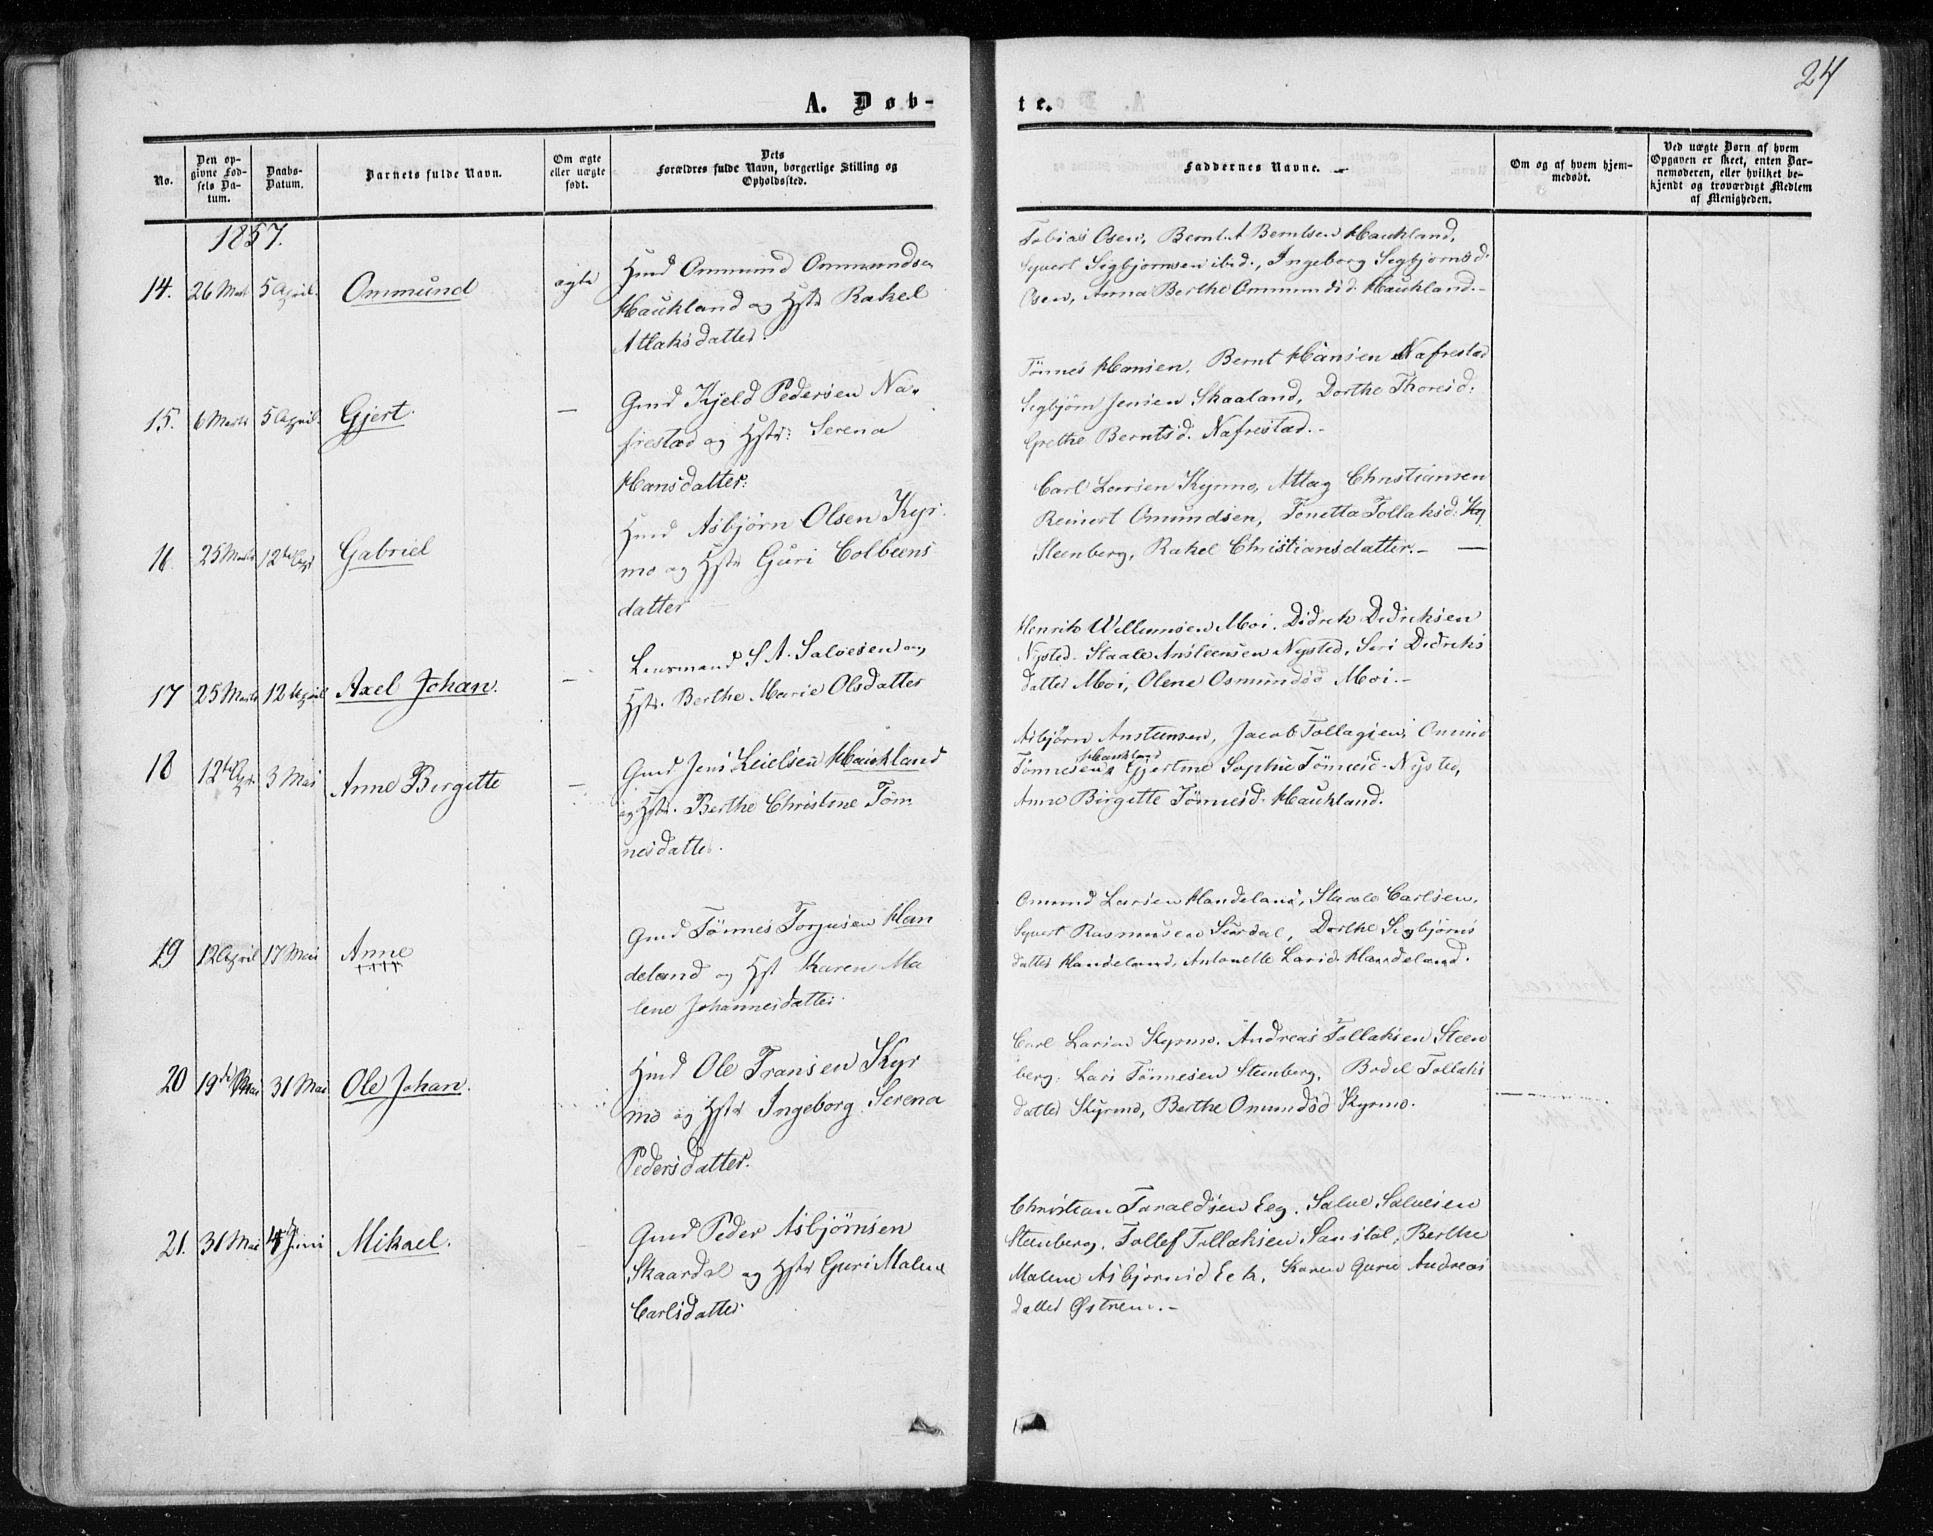 24
A. Døb-
te.
No.
Den op-
givne Fød-
sels Da-
tum.
Daabs-
Datum.
Barnets fulde Navn.
Om ægte
eller uægte
født.
Dets
Forældres fulde Navn, borgerlige Stilling og
Opholdssted.
Faddernes Navne.
Om og af hvem hjem-
medøbt.
Ved uægte Børn af hvem
Opgaven er skeet, enten Bar-
nemoderen, eller hvilket be-
kjendt og troværdigt Medlem
af Menigheden.
1857.
14. 26 Mart 5 April. Ommund ægte
Hmd Ommund Ommundsen
Haukland og Hstr Rakel
Atlaksdatter.
Tobias Osen, Bernt A Berntsen Haukland,
Syvert Sigbjørnsen ibid., Ingeborg Sigbjørnsd.
Osen, Anna Berthe Ommundsd. Haukland.-
15. 6 Marts 5 April. Gjert. —
Gmd Kjeld Pedersen Na-
frestad og Hstr: Serena
Hansdatter:
Tönnes Hansen, Bernt Hansen Nafrestad
Segbjörn Jensen Skaaland, Dorthe Thoresd:
Grethe Berntsd. Nafrestad.-
16. 25 Marts 12te Apr Gabriel
Hmd Asbjørn Olsen Kyr-
mo og Hstr Guri Colbeens
datter
Carl Larsen Kyrmo, Attag Christiansen
Reinert Omundsen, Tonetta Tollaksd:
Steenberg, Rakel Christiansdatter.- —
17 25 Marts 12 April Axel Johan. —
Lensmand S. A. Salvesen og
Hstr. Berthe Marie Olsdatter
Henrik Willumsen Moi. Didrik Didriksen
Nysted. Staale Ansteensen Nysted, Siri Didriks
datter Moi, Olene Osmundsd Moi.-
18 12te Apr 3 Mai Anne Birgitte —
Gmd Jens Leielsen Haukland
og Hstr. Berthe Christine Tøn
nesdatter.
Asbjörn Ansteensen, Jacob Tollagsen, Omund
Haukland
Tönnesen, Gjertine Sophie Tönnesd. Nysted,
Anne Birgitte Tönnesd. Haukland.
19 12 April 17 Mai Anne
Gmd Tönnes Torjusen Han
deland og Hst Karen Ma
lene Johannesdatter.
Omund Larsen Handeland, Staale Carlsen,
Syvert Rasmussen Sirdal, Dorthe Sigbjørns
datter Handeland, Antonette Larsd. Handeland.
20 19de Mai 31 Mai Ole Johan.
Hmd Ole Fransen Kyr
mo og Hstr Ingeborg Serena
Pedersdatter.
Carl Larsen Kyrmo. Andreas Tollaksen Steen
berg. Lars Tönnesen Steenberg, Bodil Tollaks
datter Kyrmo, Berthe Omundsd Kyrmo.
21. 31 Mai 4 Juni Mikael.
Gmd Peder Asbjørnsen
Skaardal og Hstr Guri Malene
Carlsdatter
Christian Taraldsen Eeg. Salve Salvesen
Steenberg. Tollef Tollaksen Sanstøl, Berthe
Malene Asbjørnsd Eek, Karen Gurie Andreas
datter Østrem.-